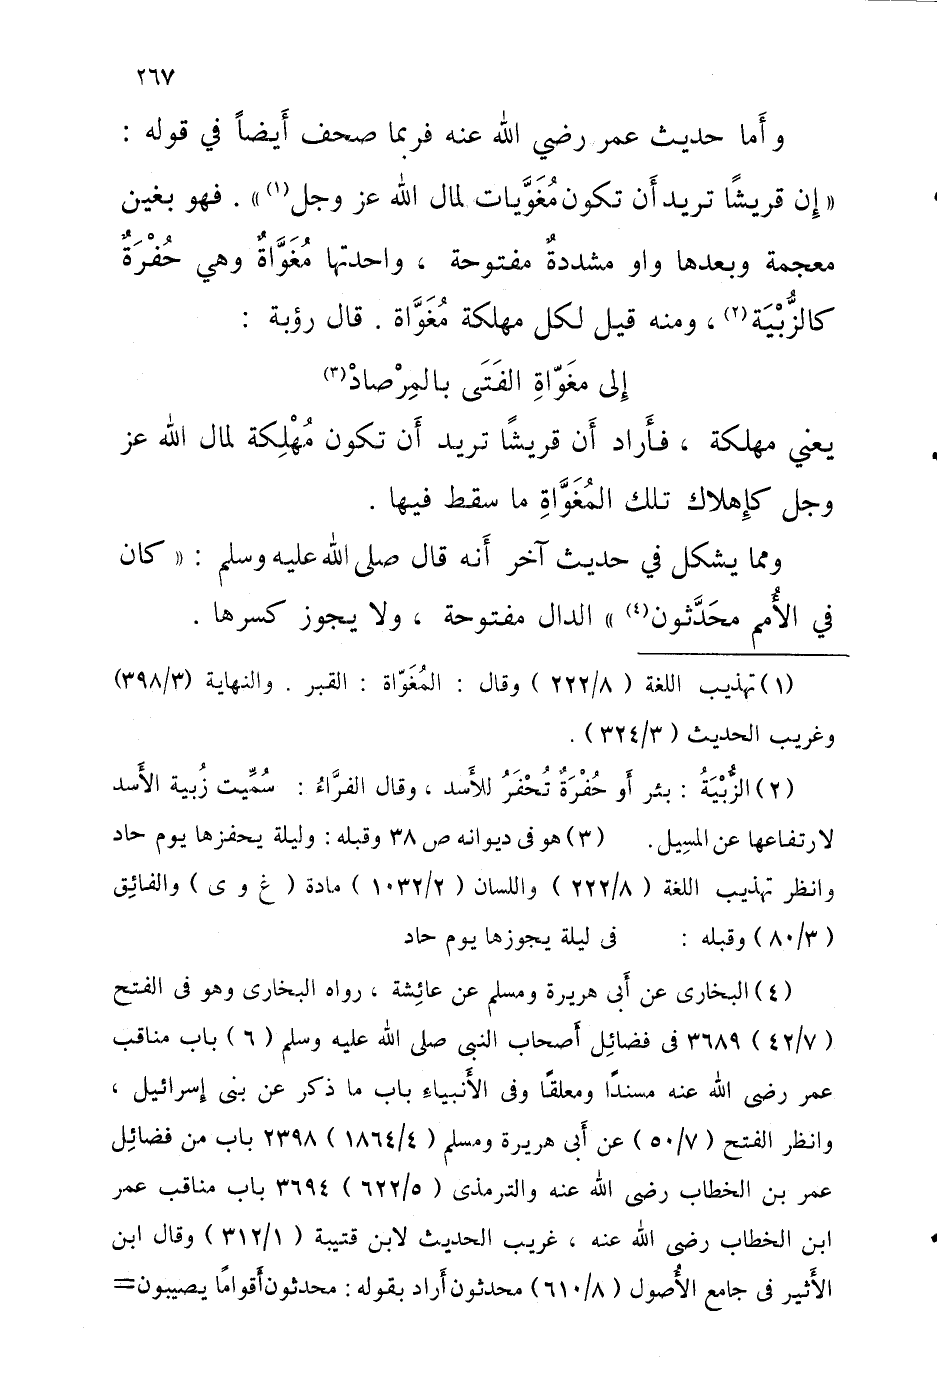 ٢٦٧
وأَما حديث عمر رضي الله عنه فربما صحف أَيضاً في قوله :
« إن قريشًا تريد أَن تكون مُغَوَّيات لمال الله عز وجل(١) » . فهو بغين
معجمة وبعدها واو مشددةٌ مفتوحة ، واحدتها مُغَوَّاةٌ وهي حُفْرَةٌ
كالزُّبْيَة(٢) ، ومنه قيل لكل مهلكة مُغَوَّاة . قال رؤبة :
إلى مغَوّاةِ الفَتَى بالمِرْصادْ(٣)
يعني مهلكة ، فأَراد أَن قريشًا تريد أَن تكون مُهْلِكة لمال الله عز
وجل كإِهلاك تلك المُغَوَّاةِ ما سقط فيها .
ومما يشكل في حديث آخر أَنه قال صلى الله عليه وسلم : « كان
في الأُمم محَدَّثون(٤) » الدال مفتوحة ، ولا يجوز كسرها .
(١) تهذيب اللغة ( ٢٢٢/٨ ) وقال : المُغَوّاة : القبر . والنهاية (٣٩٨/٣)
وغريب الحديث ( ٣٢٤/٣ ) .
(٢) الزُّبْيَةُ : بئر أَو حُفْرَةٌ تُحْفَرُ للأَسد ، وقال الفرَّاءُ : سُمِّيت زُبية الأَسد
لارتفاعها عن المسِيل . (٣) هو فى ديوانه ص ٣٨ وقبله : وليلة يحفزها يوم حاد
وانظر تهذيب اللغة ( ٢٢٢/٨ ) واللسان ( ١٠٣٢/٢ ) مادة ( غ و ى ) والفائق
( ٨٠/٣ ) وقبله : فى ليلة يجوزها يوم حاد
(٤) البخارى عن أَبى هريرة ومسلم عن عائِشة ، رواه البخارى وهو فى الفتح
( ٤٢/٧ ) ٣٦٨٩ فى فضائِل أَصحاب النبى صلى الله عليه وسلم ( ٦ ) باب مناقب
عمر رضى الله عنه مسندًا ومعلقًا وفى الأَنبياءِ باب ما ذكر عن بنى إسرائيل ،
وانظر الفتح ( ٥٠/٧ ) عن أَبى هريرة ومسلم ( ١٨٦٤/٤ ) ٢٣٩٨ باب من فضائِل
عمر بن الخطاب رضى الله عنه والترمذى ( ٦٢٢/٥ ) ٣٦٩٤ باب مناقب عمر
ابن الخطاب رضى الله عنه ، غريب الحديث لابن قتيبة ( ٣١٢/١ ) وقال ابن
الأَثير فى جامع الأُصول ( ٦١٠/٨ ) محدثون أَراد بقوله : محدثون أَقوامًا يصيبون=